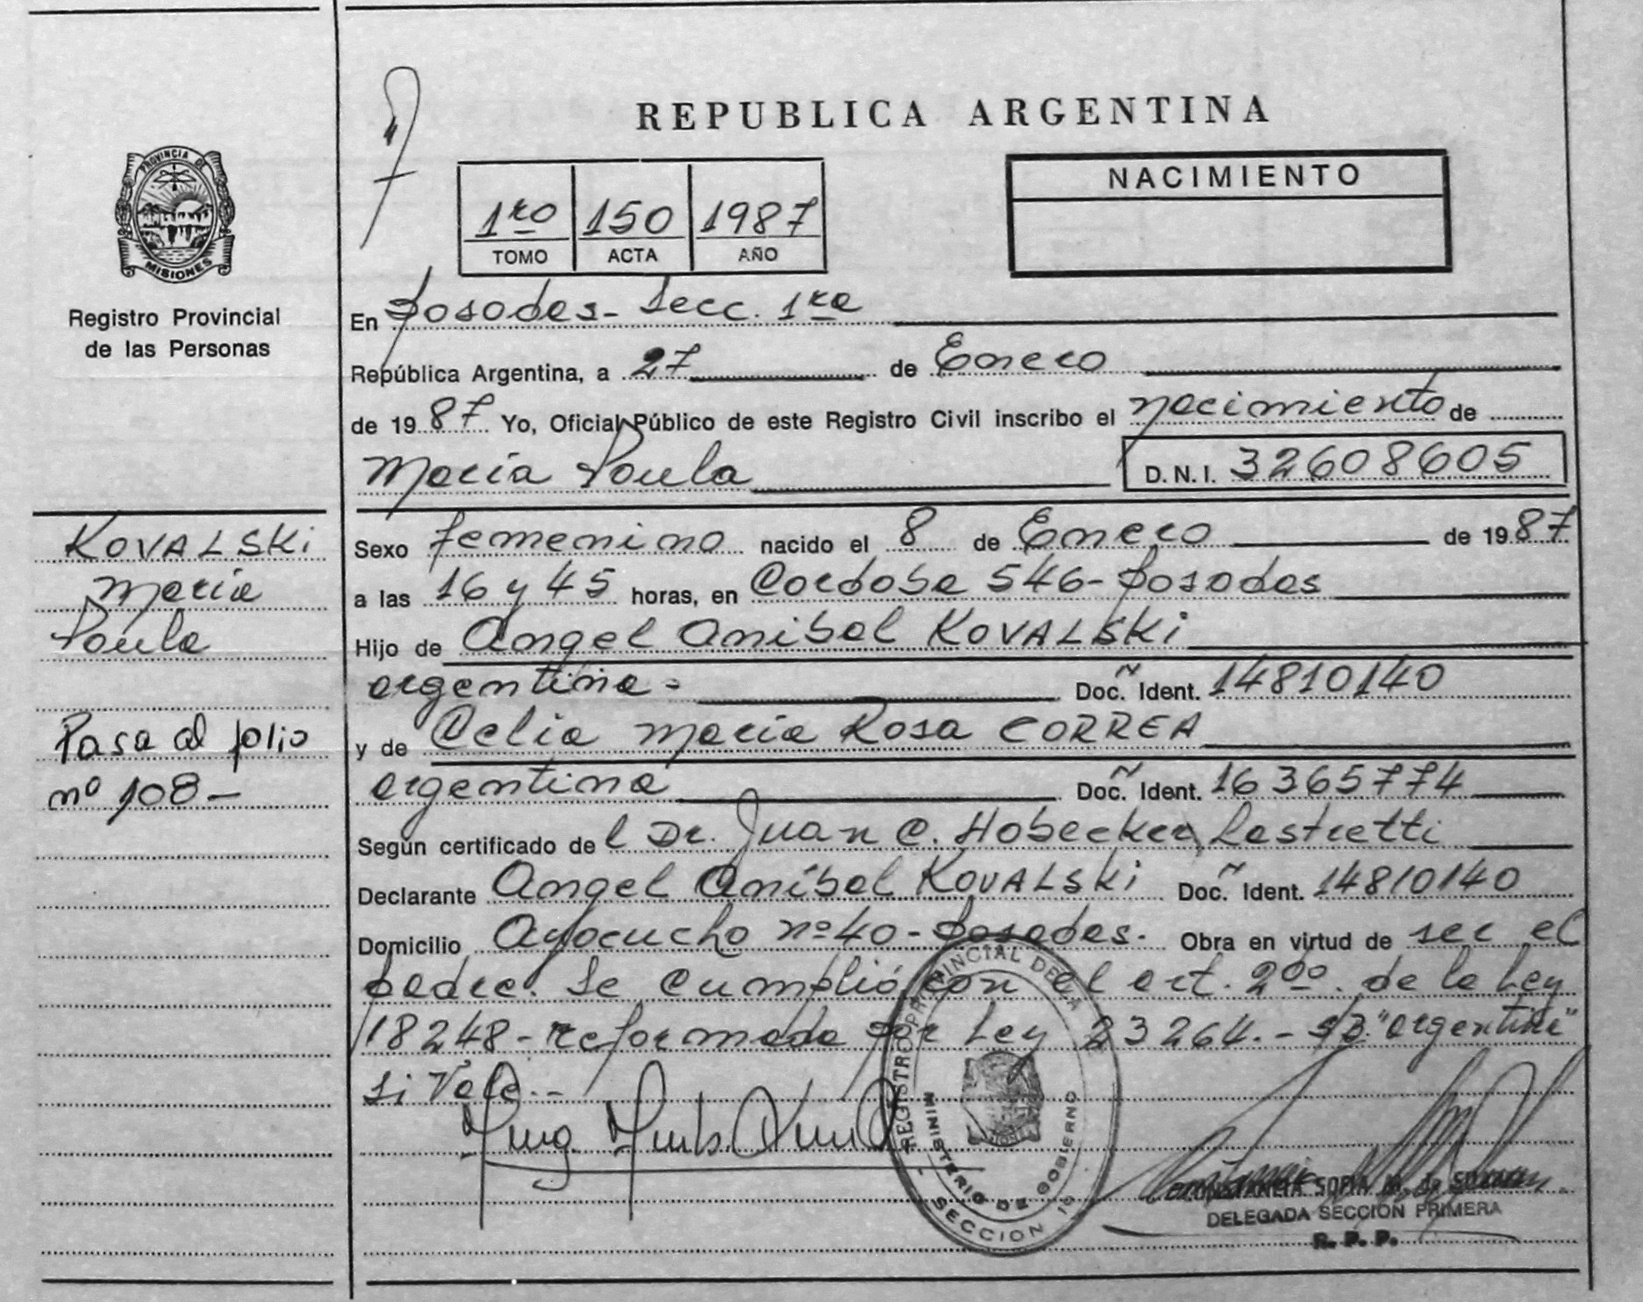 REPUBLICA ARGENTINA
PROVINCIA DE
MISIONES
Registro Provincial
de las Personas
1ro 150 1987
TOMO ACTA AÑO
NACIMIENTO
En Posadas - Secc. 1ra
República Argentina, a 27 de Enero
de 1987 Yo, Oficial Público de este Registro Civil inscribo el nacimiento de
María Paula D.N.I. 32608605
KOVALSKi
María
Paula
Pasa al folio
nº 108 -
Sexo femenino nacido el 8 de Enero de 1987
a las 16 y 45 horas, en Cordoba 546 - Posadas
Hijo de Angel Anibal KOVALSKi
argentina - Doc. Ident. 14810140
y de Celia María Rosa CORREA
argentina Doc. Ident. 16365774
Según certificado de l Dr. Juan C. Hobecker Lastretti
Declarante Angel Aníbal KOVALSKi Doc. Ident. 14810140
Domicilio Ayacucho nº 40 - Posadas. Obra en virtud de ser el
padre. Se cumplió con el art. 2º. de la Ley
18248 - reformada por Ley 23264. - "argentina"
Si Vale. -
REGISTRO PROVINCIAL DE LA
MINISTERIO DE GOBIERNO
SECCION 1º
SOFIA
DELEGADA SECCION PRIMERA
R. P. P.